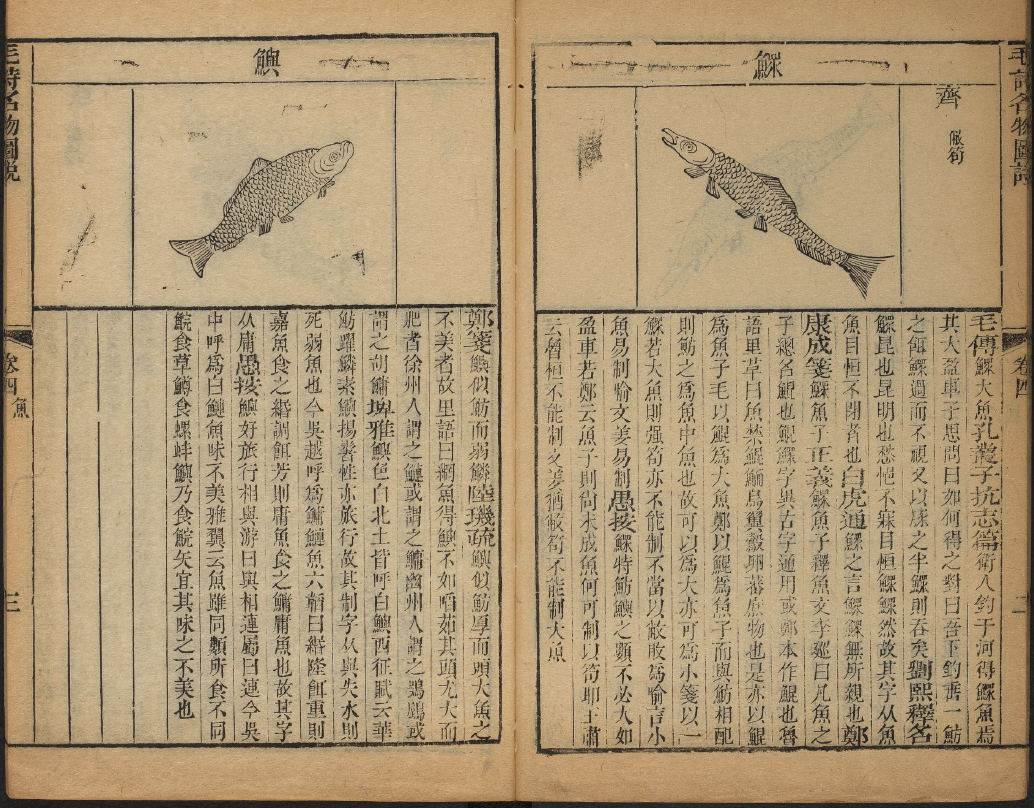 毛詩名物圖說
卷四
二
鰥
齊
敝笱
毛傳鰥大魚孔叢子抗志篇衛人釣于河得鰥魚焉
其大盈車子思問曰如何得之對曰吾下釣垂一魴
之餌鰥過而不視又以豚之半鰥則吞矣劉熙釋名
鰥昆也昆明也愁悒不寐目恒鰥鰥然故其字从魚
魚目恒不閉者也白虎通鰥之言鰥鰥無所親也鄭
康成箋鰥魚子正義鰥魚子釋魚文李巡曰凡魚之
子總名鯤也鯤鰥字異古字通用或鄭本作鯤也魯
語里革曰魚禁鯤鮞鳥翼鷇卵蕃庶物也是亦以鯤
為魚子毛以鯤為大魚鄭以鯤為魚子而與魴相配
則魴之為魚中魚也故可以為大亦可為小箋以一
鰥若大魚則强笱亦不能制不當以敝敗為喻言小
魚易制喻文姜易制愚按鰥特魴鱮之類不必大如
盈車若鄭云魚子則尙未成魚何可制以笱即王肅
云魯桓不能制文姜猶敝笱不能制大魚
鱮
鄭箋鱮似魴而弱鱗陸璣疏鱮似魴厚而頭大魚之
不美者故里語曰網魚得鱮不如啗茹其頭尤大而
肥者徐州人謂之鰱或謂之鱅幽州人謂之鴞鷉或
謂之胡鱅埤雅鱮色白北土皆呼白鱮西征賦云華
魴躍鱗素鱮揚鬐性亦旅行故其制字从與失水則
死弱魚也今吳越呼為鱅鰱魚六韜曰緡隆餌重則
嘉魚食之緡調餌芳則庸魚食之鱅庸魚也故其字
从庸愚按鱮好旅行相與游曰與相連屬曰連今吳
中呼為白鰱魚味不美雅翼云魚雖同類所食不同
鯇食草鱒食螺蚌鱮乃食鯇矢宜其味之不美也
毛詩名物圖說
卷四 魚
三